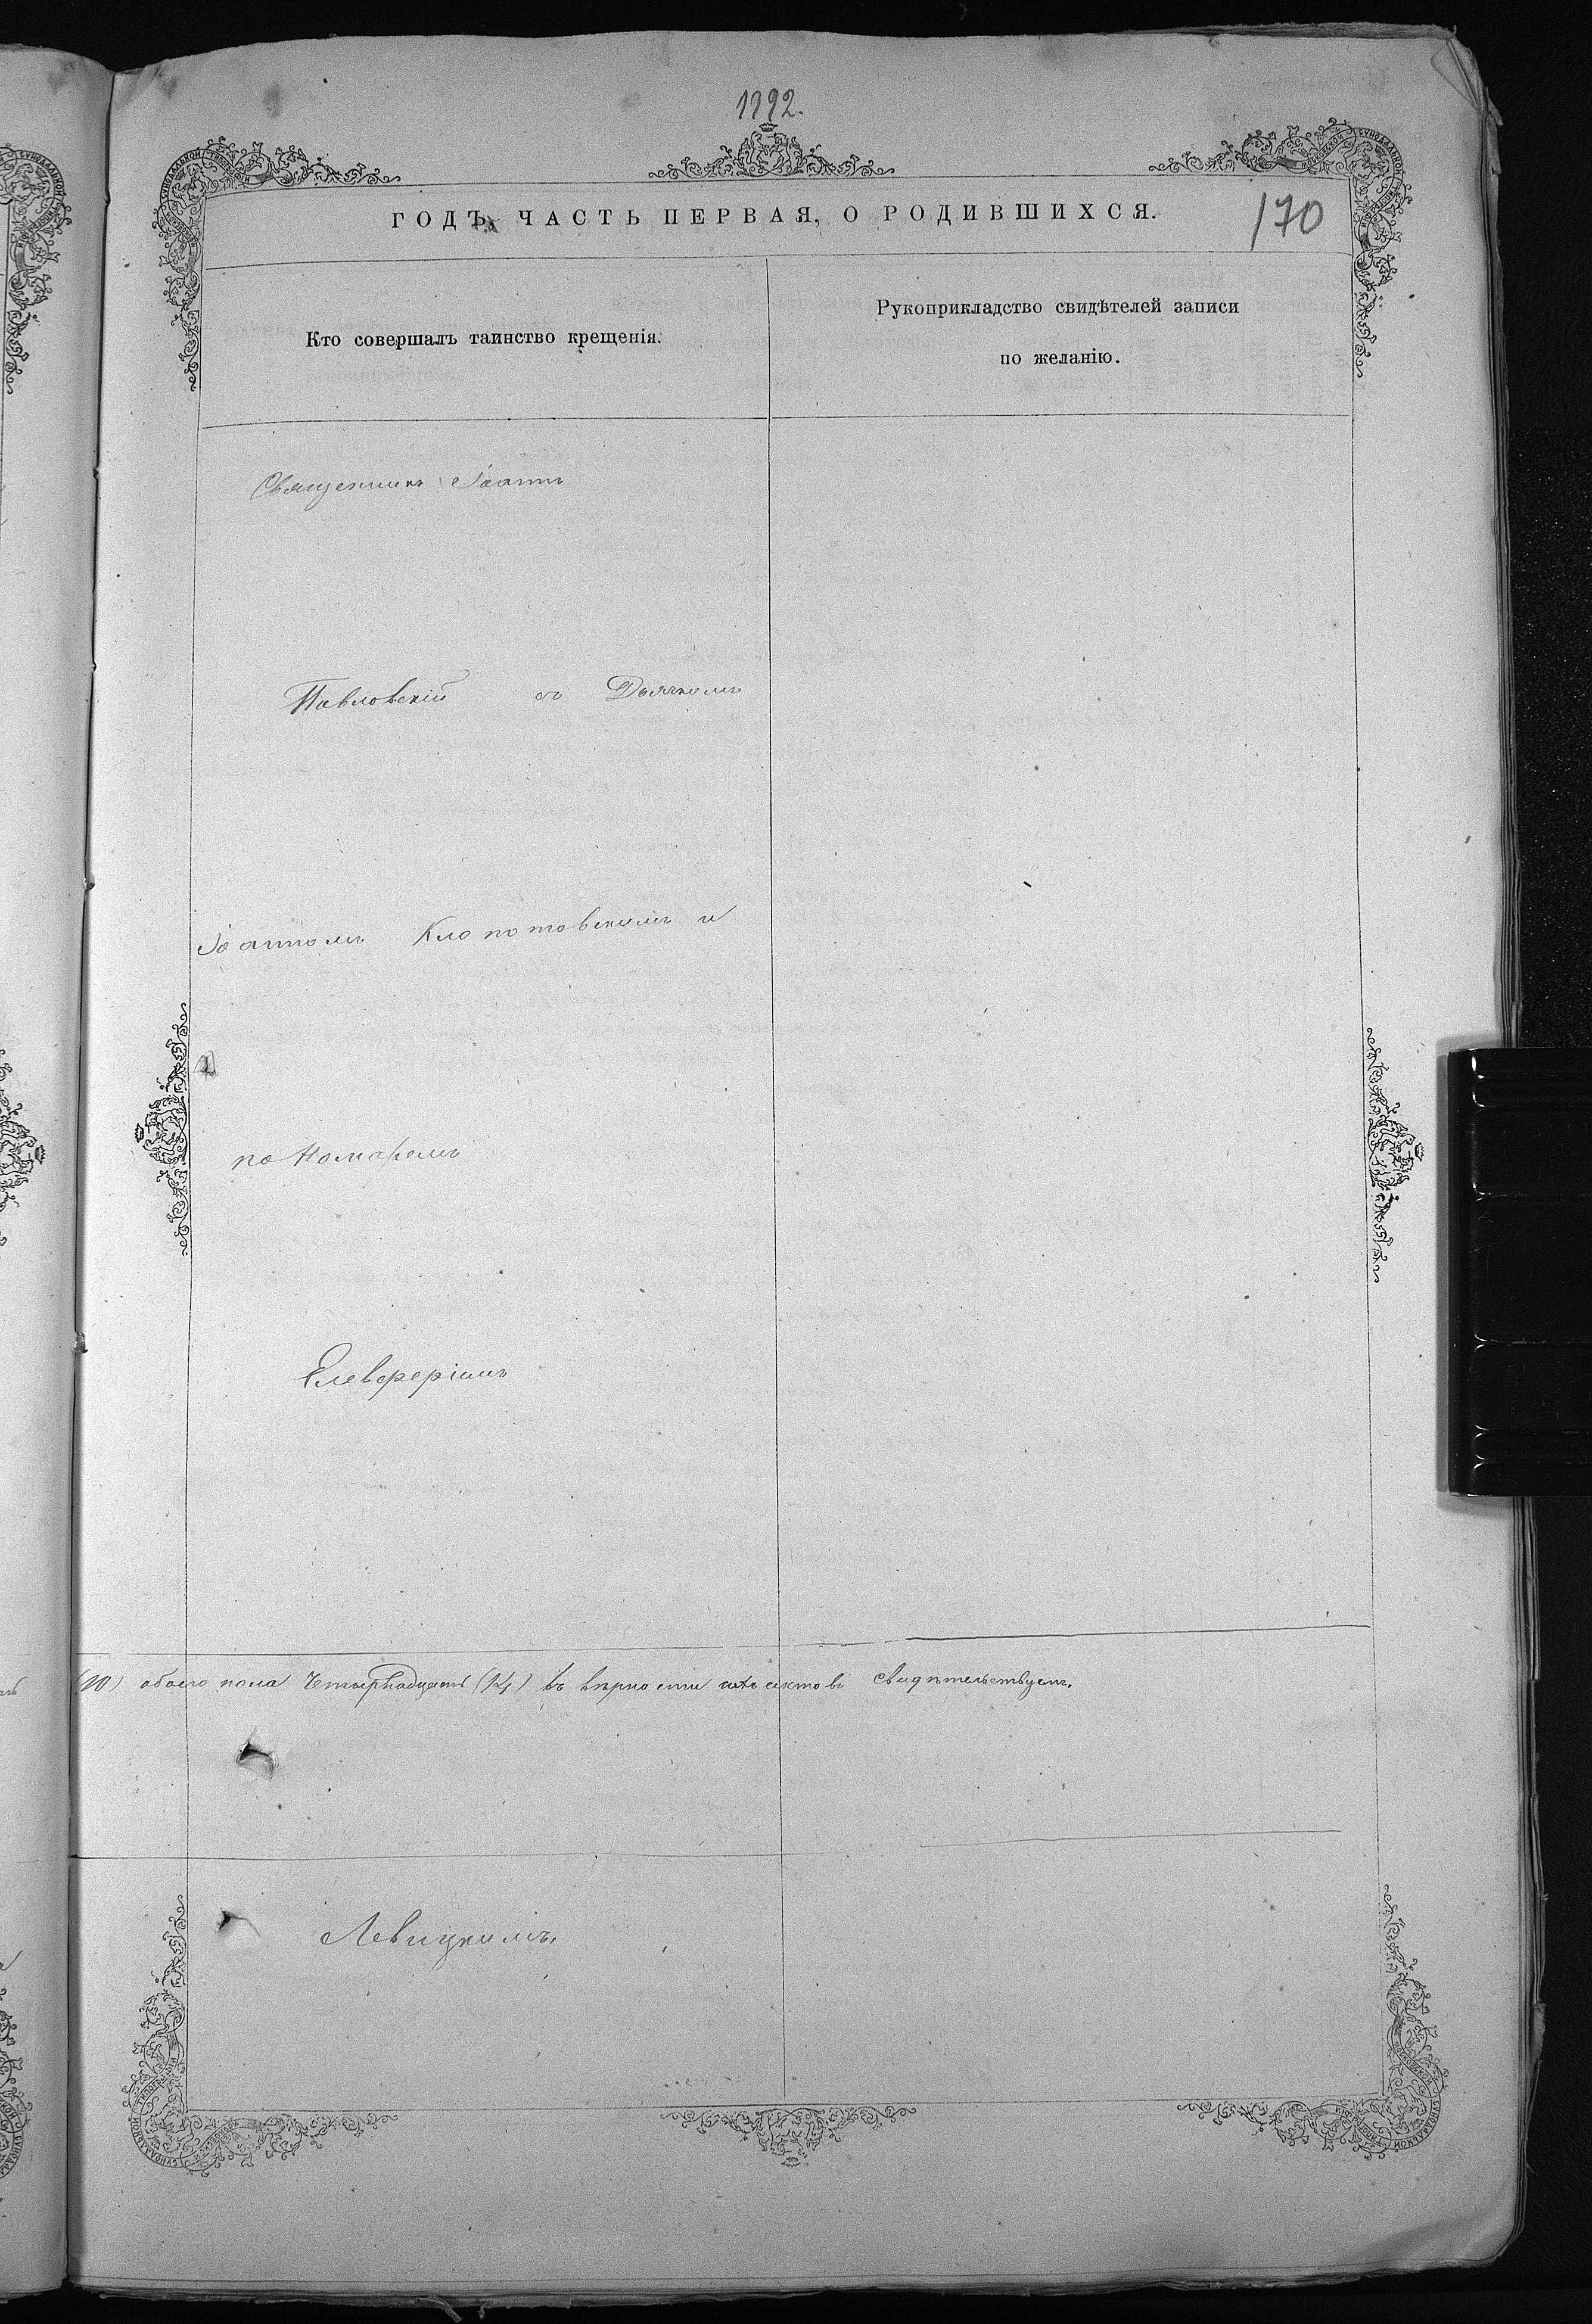 1992.
ГОДЪ, ЧАСТЬ ПЕРВАЯ, О РОДИВШИХСЯ.
170
Кто совершалъ таинство крещенія.
Рукоприкладство свидѣтелей записи
по желанію.
Священникъ Іоаннъ
Павловскій съ Дьячкомъ
Іоанномъ Клопотовскимъ и
пономаремъ
Елевферіемъ
(10) обоего пола Четырнадцать (14) въ вѣрности актовъ свидѣтельствуемъ.
Левицкимъ.